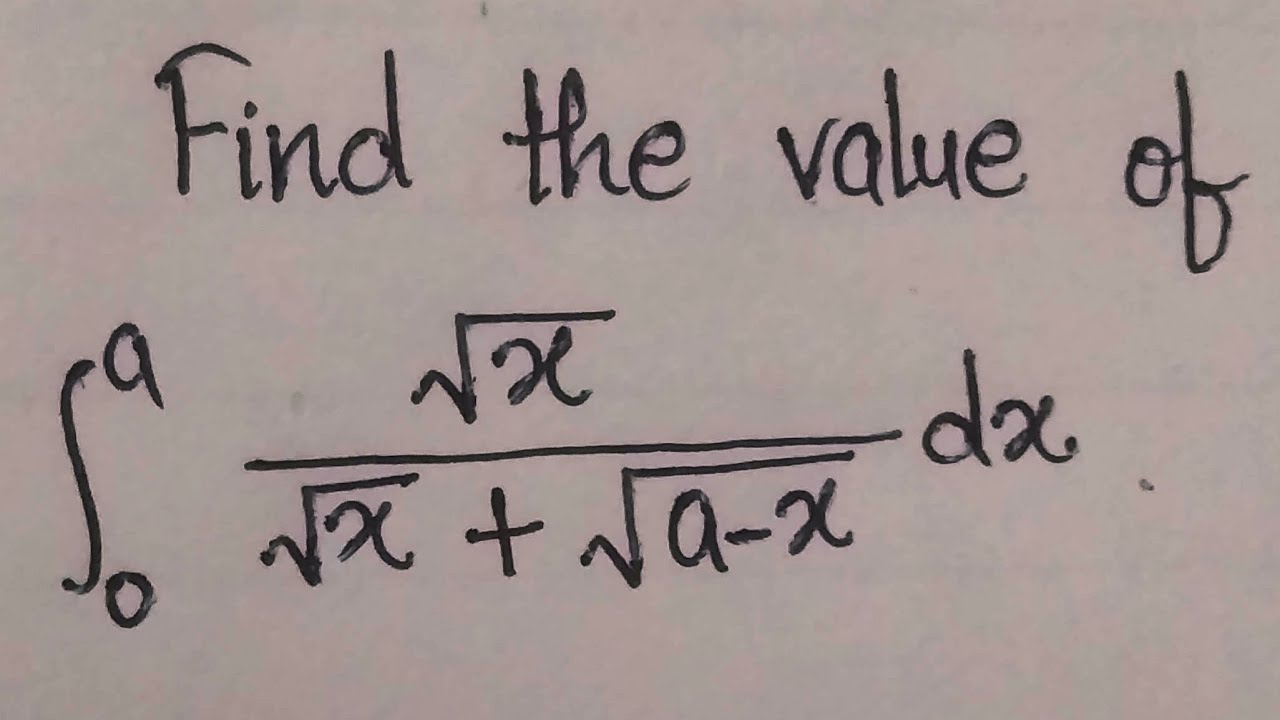 Find the value of
∫₀ᵃ √x / (√x + √(a-x)) dx.